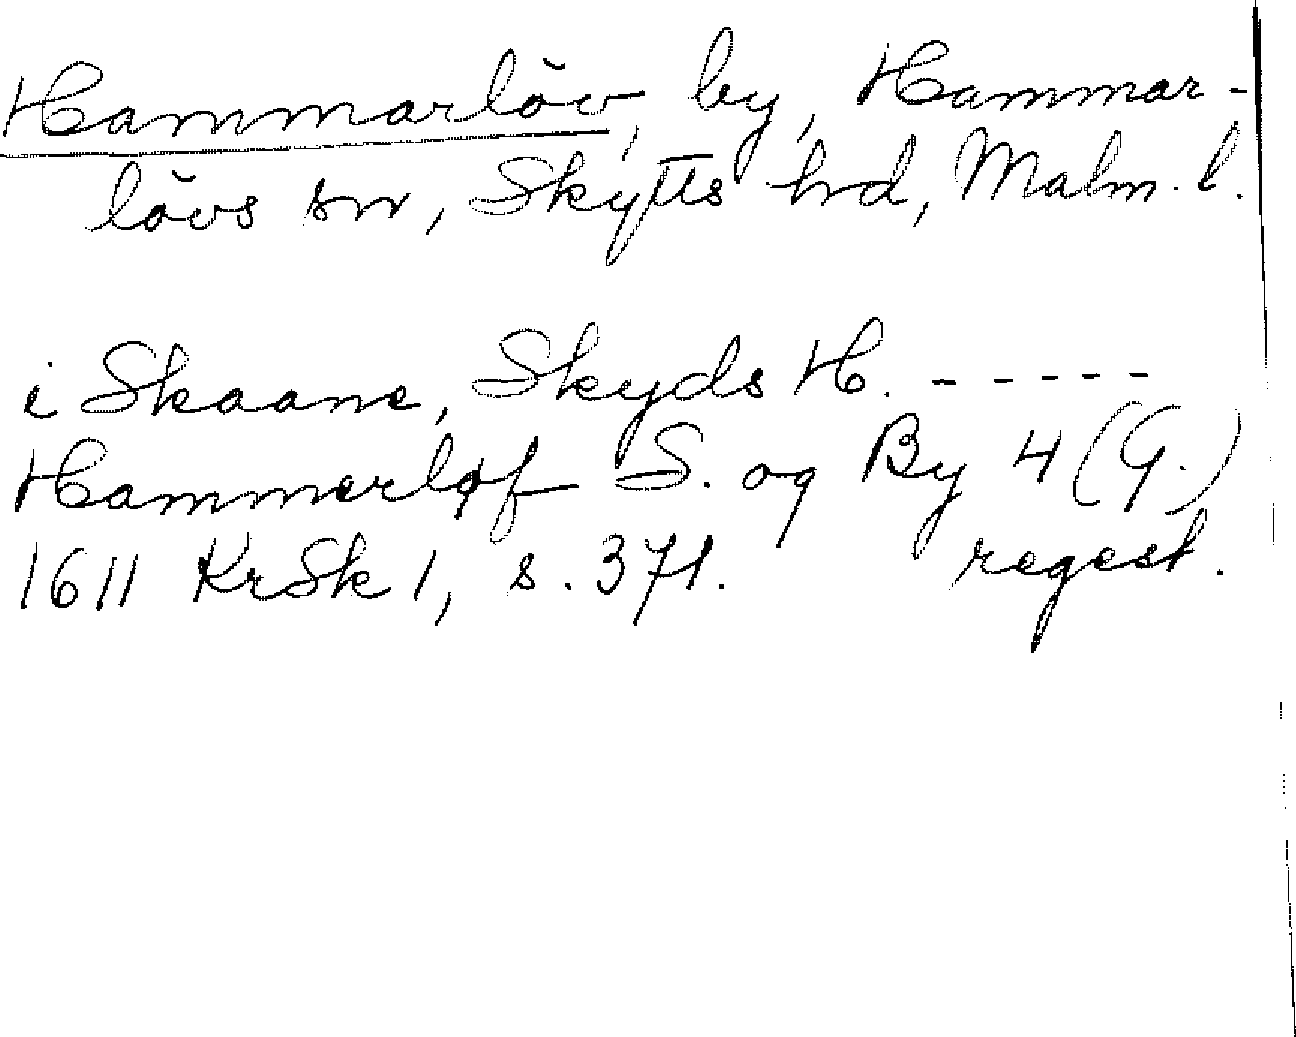 Hammarlöv, by, Hammar-
lövs sn, Skytts hd, Malm. l.
i Skaane, Skyds H. - - - - -
Hammerløf S. og By 4 (G.)
1611 KrSk 1, s. 371. regest.